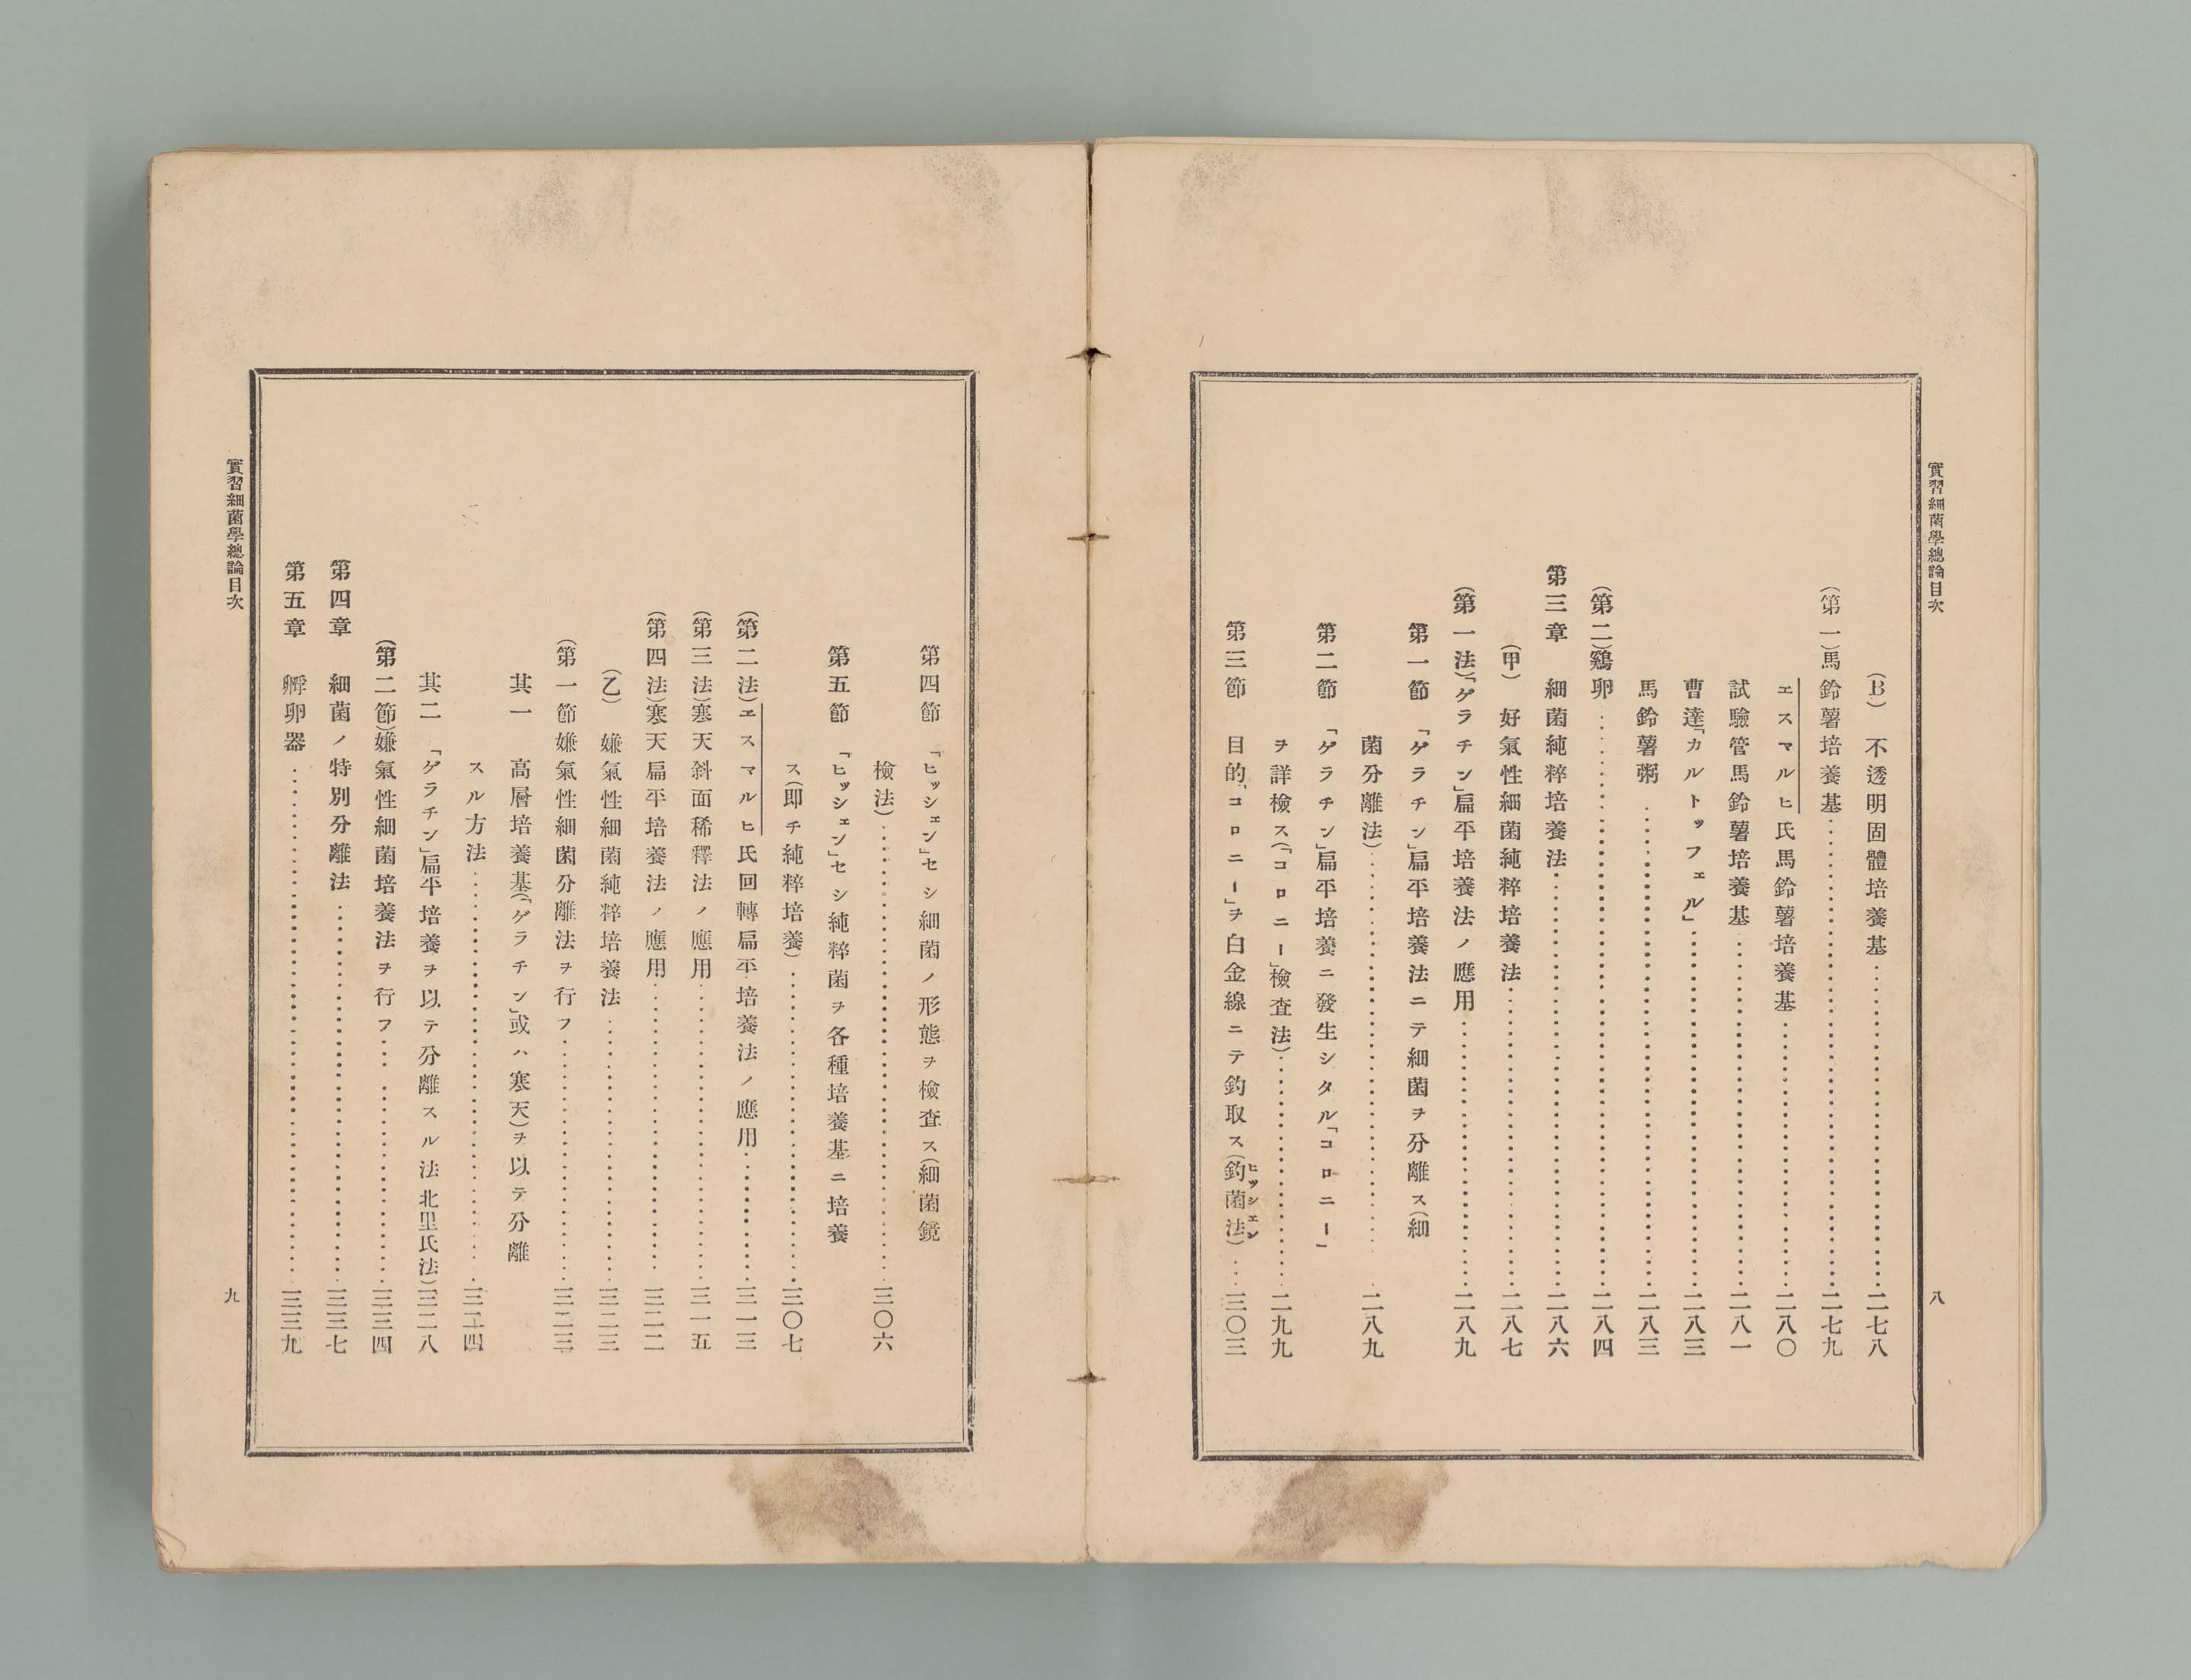 實習細菌學總論目次
八
(B) 不透明固體培養基……二七八
(第一)馬鈴薯培養基……二七九
エスマルヒ氏馬鈴薯培養基……二八〇
試驗管馬鈴薯培養基……二八一
曹達「カルトッフェル」……二八三
馬鈴薯粥……二八三
(第二)鷄卵……二八四
第三章 細菌純粹培養法……二八六
(甲) 好氣性細菌純粹培養法……二八七
(第一法)「ゲラチン」扁平培養法ノ應用……二八九
第一節 「ゲラチン」扁平培養法ニテ細菌ヲ分離ス(細
菌分離法)……二八九
第二節 「ゲラチン」扁平培養ニ發生シタル「コロニー」
ヲ詳檢ス(「コロニー」檢査法)……二九九
第三節 目的「コロニー」ヲ白金線ニテ釣取ス(釣菌法)……三〇三
ヒッシェン
第四節 「ヒッシェン」セシ細菌ノ形態ヲ檢査ス(細菌鏡
檢法)……三〇六
第五節 「ヒッシェン」セシ純粹菌ヲ各種培養基ニ培養
ス(即チ純粹培養)……三〇七
(第二法)エスマルヒ氏回轉扁平培養法ノ應用……三一三
(第三法)寒天斜面稀釋法ノ應用……三一五
(第四法)寒天扁平培養法ノ應用……三二二
(乙) 嫌氣性細菌純粹培養法……三二三
(第一節)嫌氣性細菌分離法ヲ行フ……三二三
其一 高層培養基(「ゲラチン」或ハ寒天)ヲ以テ分離
スル方法……三二四
其二 「ゲラチン」扁平培養ヲ以テ分離スル法 北里氏法)三二八
(第二節)嫌氣性細菌培養法ヲ行フ……三三四
第四章 細菌ノ特別分離法……三三七
第五章 孵卵器……三三九
實習細菌學總論目次
九